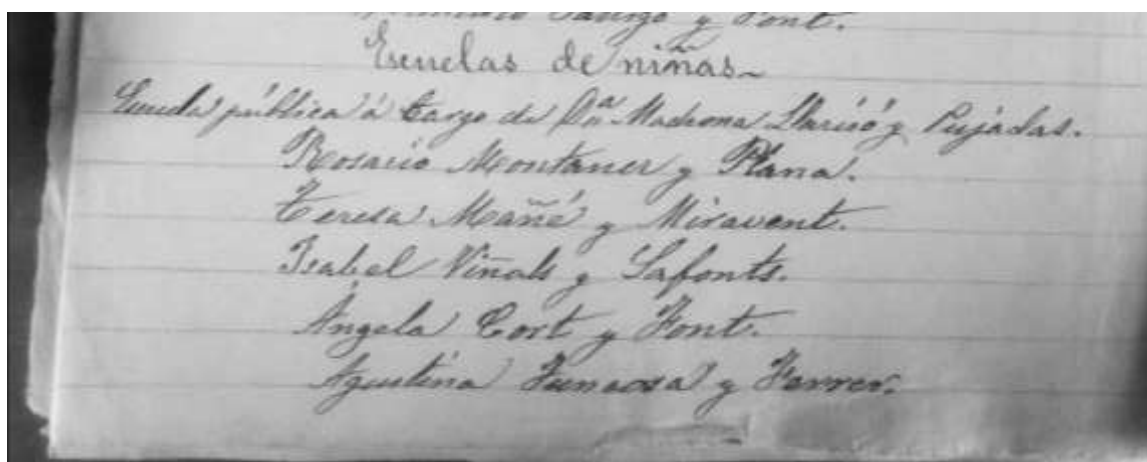 y Font.
Escuelas de niñas
Escuela pública á cargo de Dª Madrona Llarisó y Pujadas.
Rosario Montaner y Plana.
Teresa Mañé y Miravent.
Isabel Viñals y Lafonts.
Ángela Cort y Font.
Agustina y Ferrer.